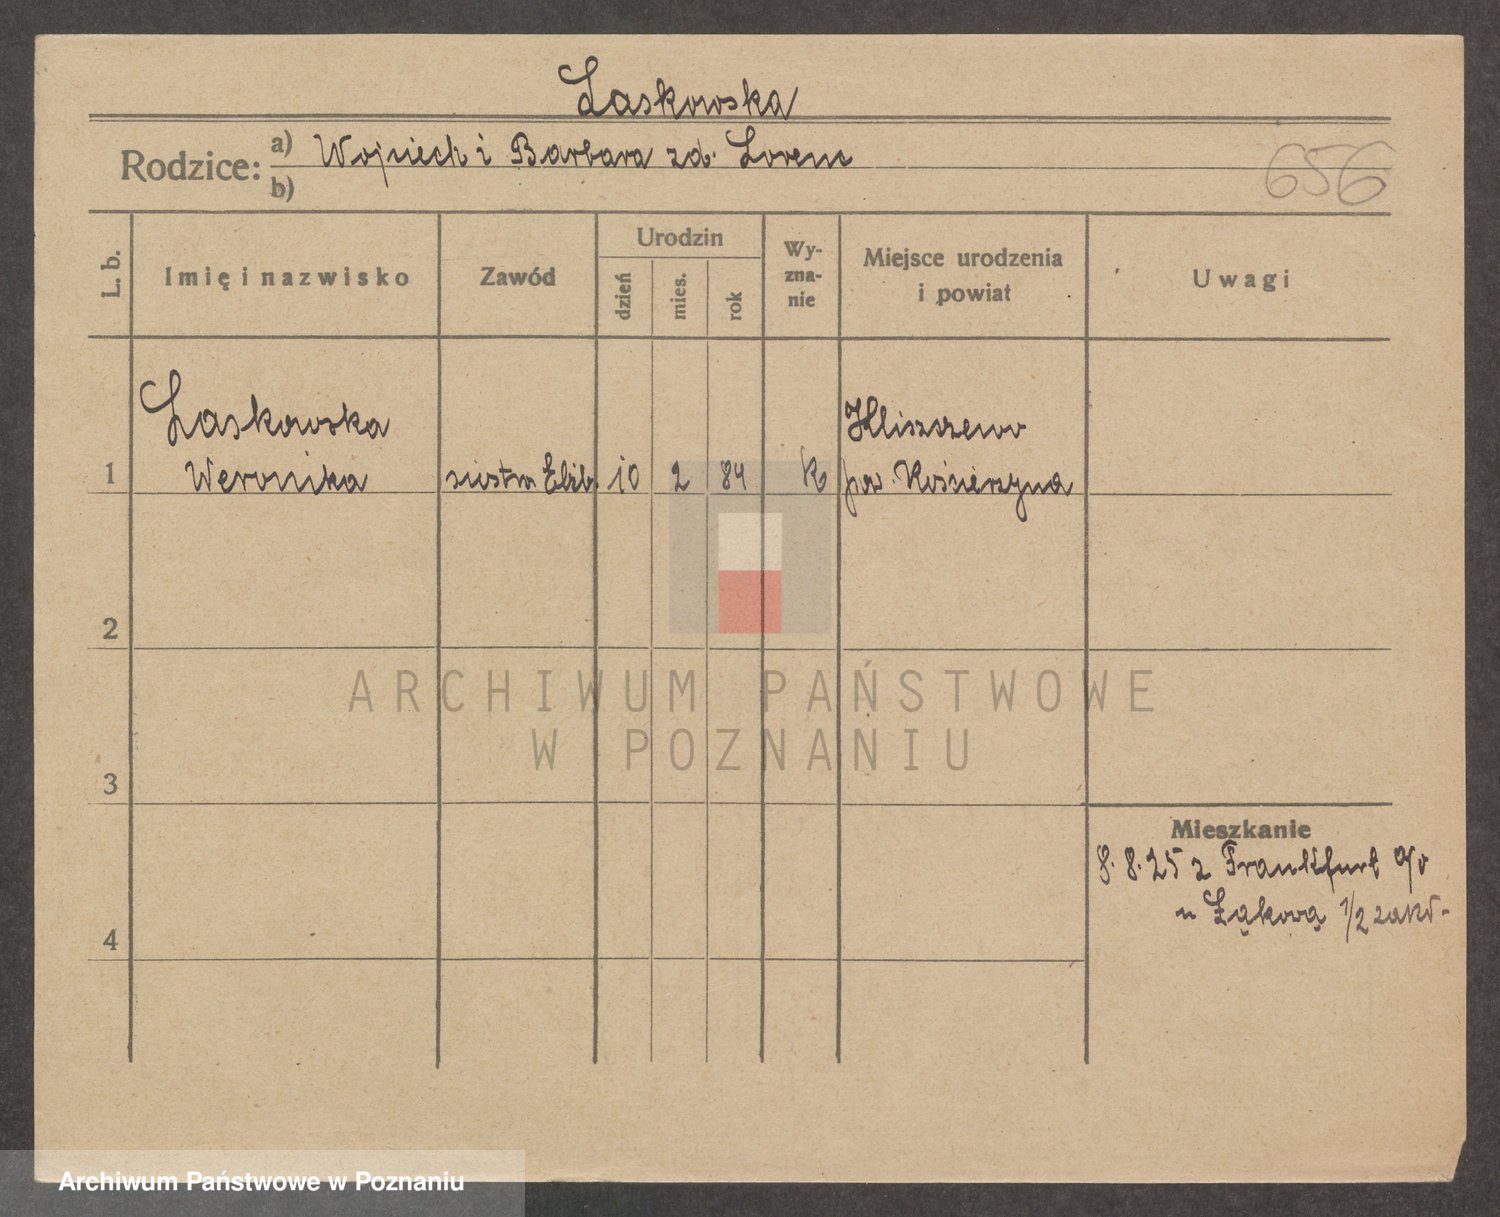 Laskowska
Rodzice: a) Wojciech i Barbara zd. Lorenc
b)
656
L. b.
Imię i nazwisko
Zawód
Urodzin
dzień
mies.
rok
Wy-
zna-
nie
Miejsce urodzenia
i powiat
Uwagi
Laskowska
Weronika
1
siostra Elżb.
10
2
84
K
pow. Kościerzyna
2
3
4
Mieszkanie
8.8.25 z Frankfurt a/o
Łąkowa 1/2 zakł.
ARCHIWUM PAŃSTWOWE
W POZNANIU
Archiwum Państwowe w Poznaniu